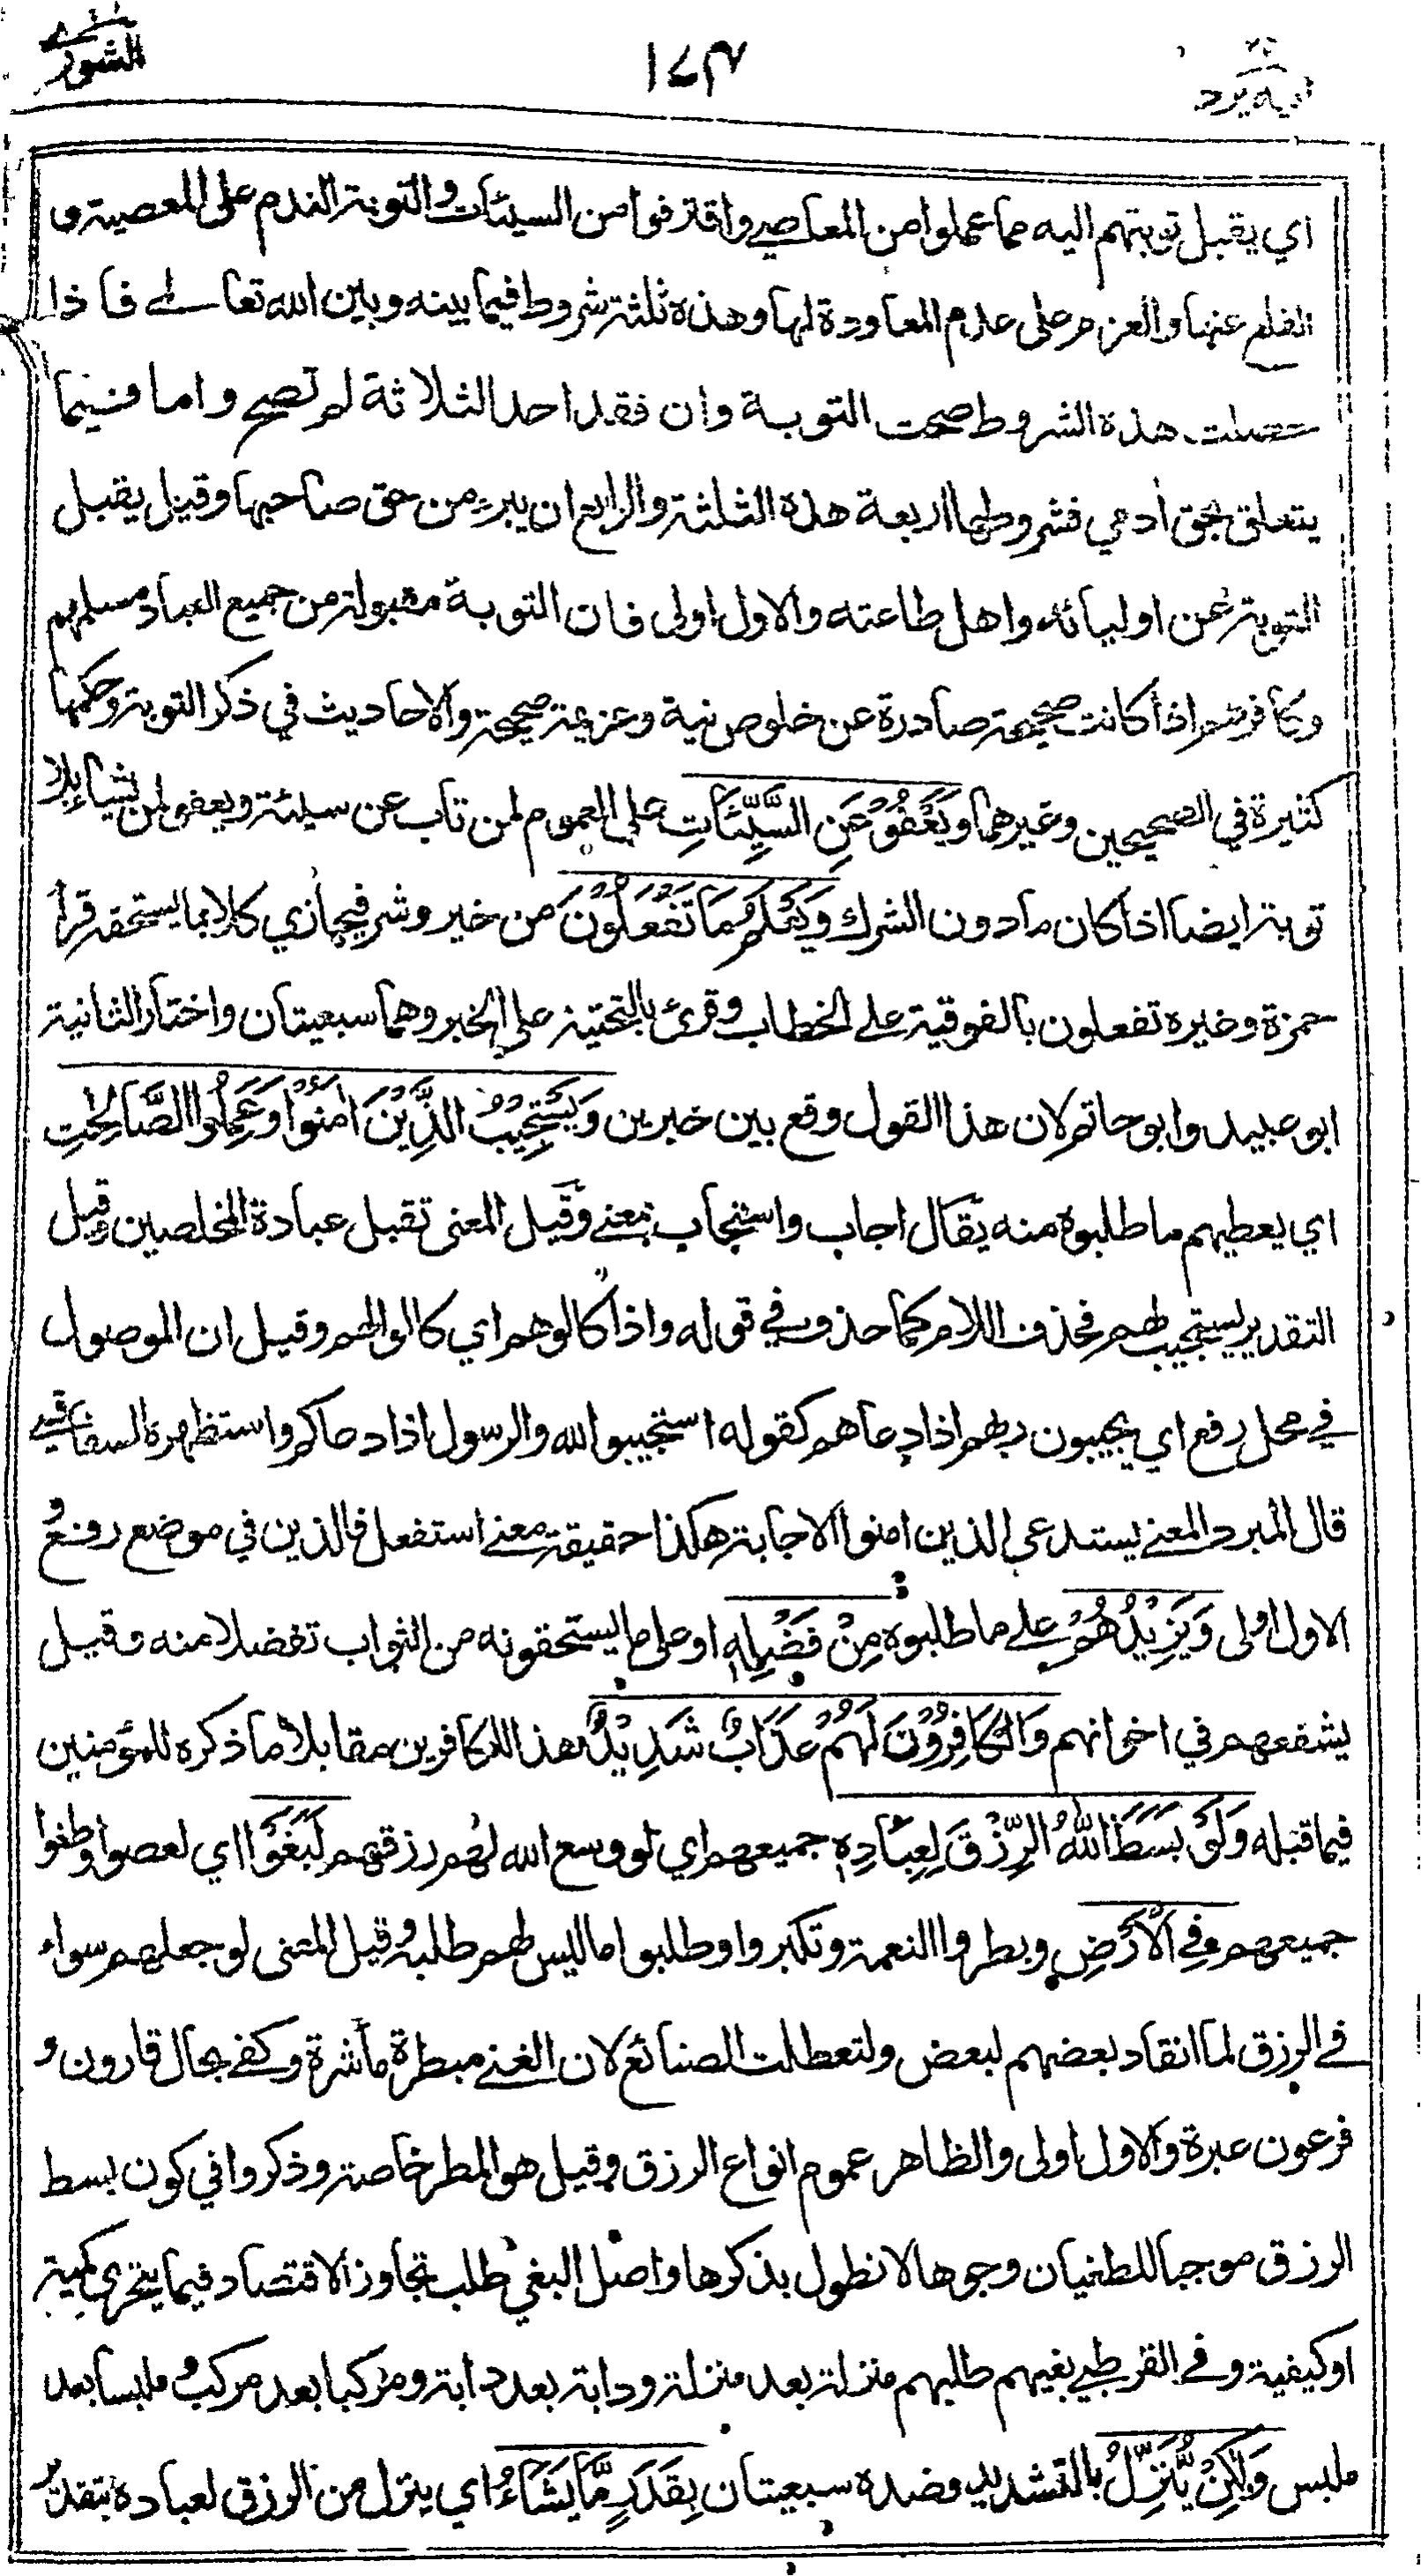 اليه يرد
١٧٣
الشورى
اي يقبل توبتهم اليه مما عملوا من المعاصي واقترفوا من السيئات والتوبة الندم على المعصية و
القلع عنها والعزم على عدم المعاودة لها وهذه ثلثة شروط فيما بينه وبين الله تعالى فاذا
حصلت هذه الشروط صحت التوبة وان فقد احد الثلاثة لم تصح واما فيما
يتعلق بحق أدمي فشروطها اربعة هذه الثلثة والرابع ان يبرء من حق صاحبها وقيل يقبل
التوبة عن اوليائه واهل طاعته والاول اولى فان التوبة مقبولة من جميع العباد مسلمهم
وكافرهم اذا كانت صحيحة صادرة عن خلوص نية وعزيمة صحيحة والاحاديث في ذكر التوبة وحكمها
كثيرة في الصحيحين وغيرهما وَيَعْفُوْ عَنِ السَّيِّئَاتِ على العموم لمن تاب عن سيئة ويعفو لمن يشاء بلا
توبة ايضا اذا كان مادون الشرك وَيَعْلَمُ مَا تَفْعَلُوْنَ من خير وشر فيجازي كلا بما يستحقه قرأ
حمزة وغيره تفعلون بالفوقية على الخطاب وقرئ بالتحتية على الخبر وهما سبعيتان واختار الثانية
ابو عبيد وابو حاتم لان هذا القول وقع بين خبرين وَيَسْتَجِيْبُ الَّذِيْنَ اٰمَنُوْا وَعَمِلُوا الصَّالِحٰتِ
اي يعطيهم ما طلبوه منه يقال اجاب واستجاب بمعنى وقيل المعنى تقبل عبادة المخلصين وقيل
التقدير يستجيب لهم فحذف اللام كما حذف في قوله واذا كالوهم اي كالوا لهم وقيل ان الموصول
في محل رفع اي يجيبون ربهم اذا دعاهم كقوله استجيبوا لله والرسول اذا دعاكم واستظهره السفاقسي
قال المبرد المعنى يستدعي الذين امنوا الاجابة هكذا حقيقة معنى استفعل فالذين في موضع رفع و
الاول اولى وَيَزِيْدُهُمْ على ما طلبوه مِنْ فَضْلِهٖ او على ما يستحقونه من الثواب تفضلا منه وقيل
يشفعهم في اخوانهم وَالْكَافِرُوْنَ لَهُمْ عَذَابٌ شَدِيْدٌ هذا للكافرين مقابلا ما ذكره للمؤمنين
فيما قبله وَلَوْ بَسَطَ اللهُ الرِّزْقَ لِعِبَادِهٖ جميعهم اي لو وسع الله لهم رزقهم لَبَغَوْا اي لعصوا وطغوا
جميعهم فِي الْاَرْضِ وبطروا النعمة وتكبروا وطلبوا ما ليس لهم طلبه وقيل المعنى لو جعلهم سواء
في الرزق لما انقاد بعضهم لبعض ولتعطلت الصنائع لان الغنى مبطرة مأشرة وكفى بحال قارون و
فرعون عبرة والاول اولى والظاهر عموم انواع الرزق وقيل هو المطر خاصة وذكروا في كون بسط
الرزق موجبا للطغيان وجوها لا نطول بذكرها واصل البغي طلب تجاوز الاقتصاد فيما يتحرى كمية
او كيفية وفي القرطبي بغيهم طلبهم منزلة بعد منزلة ودابة بعد دابة ومركبا بعد مركب وملبسا بعد
ملبس وَلٰكِنْ يُّنَزِّلُ بالتشديد وضده سبعيتان بِقَدَرٍ مَّا يَشَاءُ اي ينزل من الرزق لعباده بتقدير